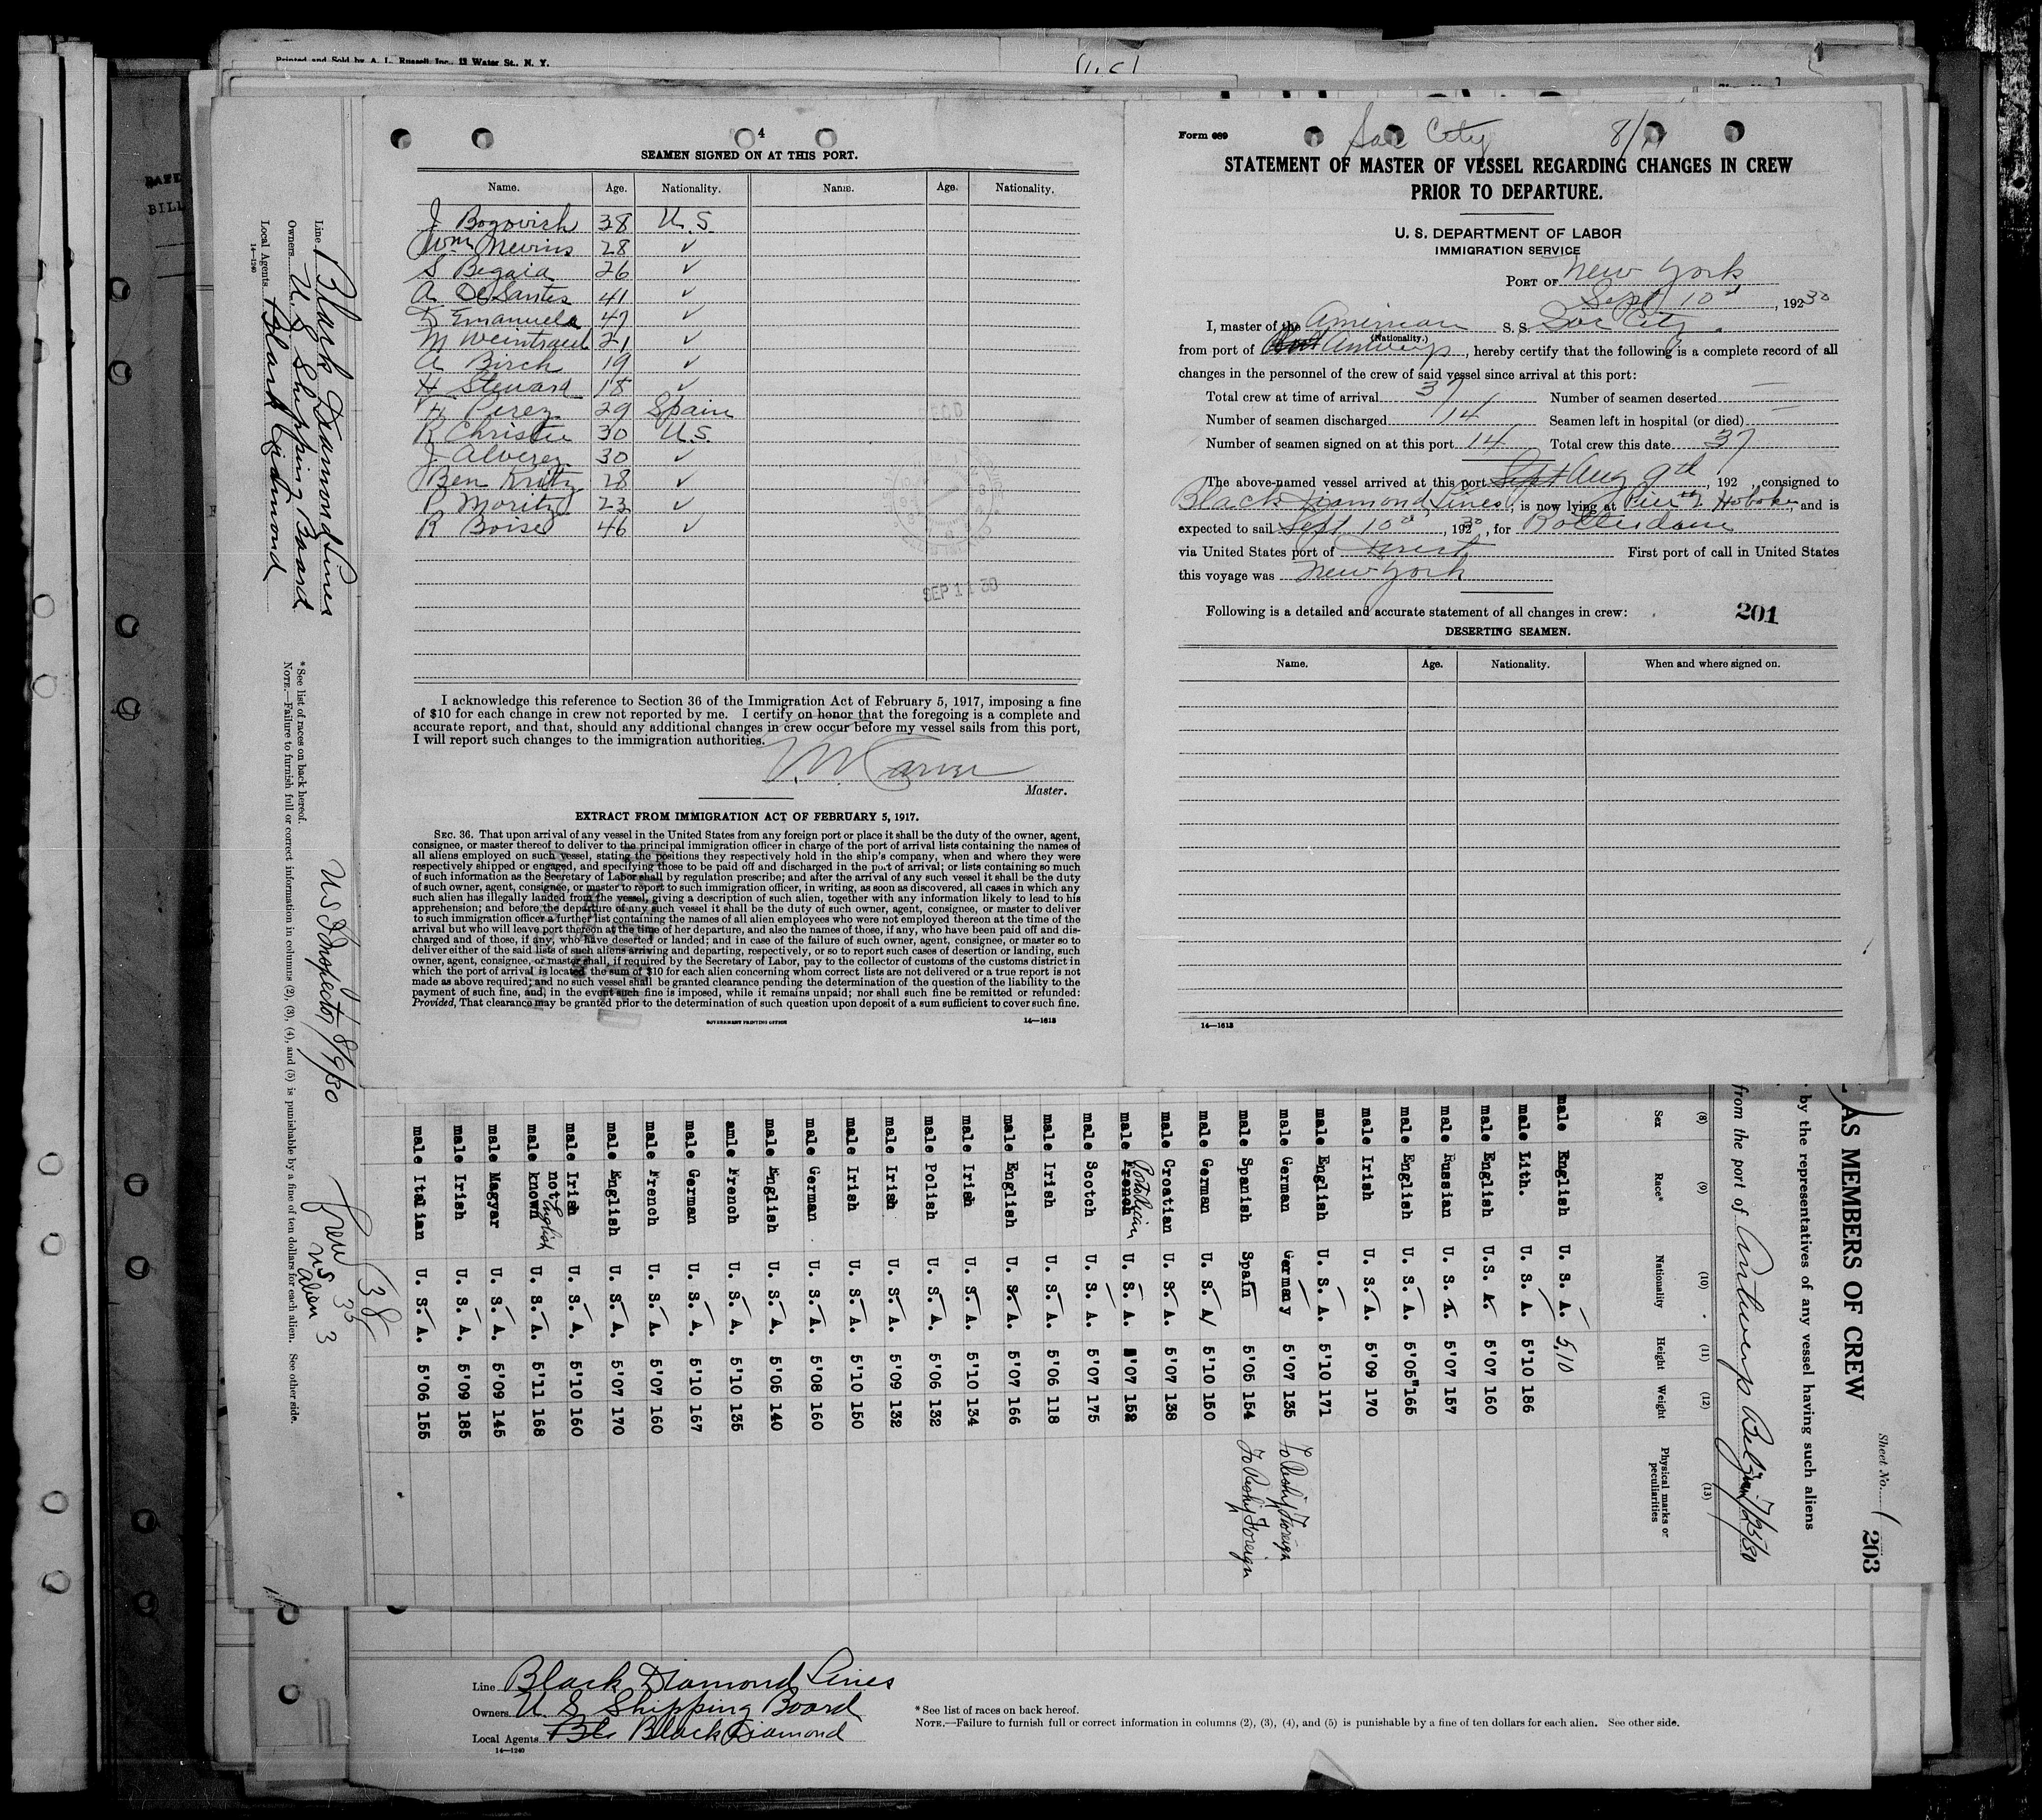 Printed and Sold by A. L. Russell Inc., 13 Water St., N. Y.
4
SEAMEN SIGNED ON AT THIS PORT.
Name. Age. Nationality. Name. Age. Nationality.
J Bogovich 38 U. S.
Wm Nevins 28 ✓
S Begaia 26 ✓
A De Santes 41 ✓
Emanuele 47 ✓
M Weintraub 21 ✓
A Birch 19 ✓
H Steward 18 ✓
H Perez 29 Spain
R Christie 30 U. S.
J Alverez 30 ✓
Ben Kritz 28 ✓
P Moritz 23 ✓
R Boise 46 ✓
SEP 11 30
I acknowledge this reference to Section 36 of the Immigration Act of February 5, 1917, imposing a fine
of $10 for each change in crew not reported by me. I certify on honor that the foregoing is a complete and
accurate report, and that, should any additional changes in crew occur before my vessel sails from this port,
I will report such changes to the immigration authorities.
Master.
EXTRACT FROM IMMIGRATION ACT OF FEBRUARY 5, 1917.
SEC. 36. That upon arrival of any vessel in the United States from any foreign port or place it shall be the duty of the owner, agent,
consignee, or master thereof to deliver to the principal immigration officer in charge of the port of arrival lists containing the names of
all aliens employed on such vessel, stating the positions they respectively hold in the ship's company, when and where they were
respectively shipped or engaged, and specifying those to be paid off and discharged in the port of arrival; or lists containing so much
of such information as the Secretary of Labor shall by regulation prescribe; and after the arrival of any such vessel it shall be the duty
of such owner, agent, consignee, or master to report to such immigration officer, in writing, as soon as discovered, all cases in which any
such alien has illegally landed from the vessel, giving a description of such alien, together with any information likely to lead to his
apprehension; and before the departure of any such vessel it shall be the duty of such owner, agent, consignee, or master to deliver
to such immigration officer a further list containing the names of all alien employees who were not employed thereon at the time of the
arrival but who will leave port thereon at the time of her departure, and also the names of those, if any, who have been paid off and dis-
charged and of those, if any, who have deserted or landed; and in case of the failure of such owner, agent, consignee, or master so to
deliver either of the said lists of such aliens arriving and departing, respectively, or so to report such cases of desertion or landing, such
owner, agent, consignee, or master shall, if required by the Secretary of Labor, pay to the collector of customs of the customs district in
which the port of arrival is located the sum of $10 for each alien concerning whom correct lists are not delivered or a true report is not
made as above required; and no such vessel shall be granted clearance pending the determination of the question of the liability to the
payment of such fine, and, in the event such fine is imposed, while it remains unpaid; nor shall such fine be remitted or refunded:
Provided, That clearance may be granted prior to the determination of such question upon deposit of a sum sufficient to cover such fine.
GOVERNMENT PRINTING OFFICE 14—1613
Form 689
Sac City
STATEMENT OF MASTER OF VESSEL REGARDING CHANGES IN CREW
PRIOR TO DEPARTURE.
U. S. DEPARTMENT OF LABOR
IMMIGRATION SERVICE
PORT OF New York
Sept 10th, 19230
I, master of the American S. S. Sac City
(Nationality.)
from port of Antwerp, hereby certify that the following is a complete record of all
changes in the personnel of the crew of said vessel since arrival at this port:
Total crew at time of arrival 37 Number of seamen deserted —
Number of seamen discharged 14 Seamen left in hospital (or died) —
Number of seamen signed on at this port 14 Total crew this date 37
The above-named vessel arrived at this port Sept Aug 9th, 192 , consigned to
Black Diamond Lines, is now lying at Pier Hoboken, and is
expected to sail Sept 10th, 19230, for Rotterdam
via United States port of Direct First port of call in United States
this voyage was New York
Following is a detailed and accurate statement of all changes in crew:
201
DESERTING SEAMEN.
Name. Age. Nationality. When and where signed on.
14—1613
Line Black Diamond Lines
Owners U. S. Shipping Board
Local Agents Black Diamond
14—1240
* See list of races on back hereof.
NOTE.—Failure to furnish full or correct information in columns (2), (3), (4), and (5) is punishable by a fine of ten dollars for each alien. See other side.
U S Inspector 8/9/30
Crew 38
US 35
Alien 3
AS MEMBERS OF CREW
Sheet No. 1
203
by the representatives of any vessel having such aliens
from the port of Antwerp Belgium 7/25/30
(8) (9) (10) (11) (12) (13)
Sex Race* Nationality Height Weight Physical marks or peculiarities
male English U. S. A. 5,10
male Lith. U. S. A. 5'10 186
male English U.S. A. 5'07 160
male Russian U. S. A. 5'07 157
male English U. S. A. 5'05" 165
male Irish U. S. A. 5'09 170
male English U. S. A. 5'10 171
male German Germany 5'07 135 To Reship Foreign
male Spanish Spain 5'05 154 To Reship Foreign
male German U. S. A 5'10 150
male Croatian U. S. A. 5'07 138
male French U. S. A. 5'07 152
male Scotch U. S. A. 5'07 175
male Irish U. S. A. 5'06 118
male English U. S. A. 5'07 166
male Irish U. S. A. 5'10 134
male Polish U. S. A. 5'06 132
male Irish U. S. A. 5'09 132
male Irish U. S. A. 5'10 150
male German U. S. A. 5'08 160
male English U. S. A. 5'05 140
amle French U. S. A. 5'10 135
male German U. S. A. 5'10 167
male French U. S. A. 5'07 160
male English U. S. A. 5'07 170
male Irish U. S. A. 5'10 160
male not known English U. S. A. 5'11 168
male Magyar U. S. A. 5'09 145
male Irish U. S. A. 5'09 185
male Italian U. S. A. 5'06 155
Line Black Diamond Lines
Owners U. S. Shipping Board
Local Agents Blc Black Diamond
14—1240
* See list of races on back hereof.
NOTE.—Failure to furnish full or correct information in columns (2), (3), (4), and (5) is punishable by a fine of ten dollars for each alien. See other side.